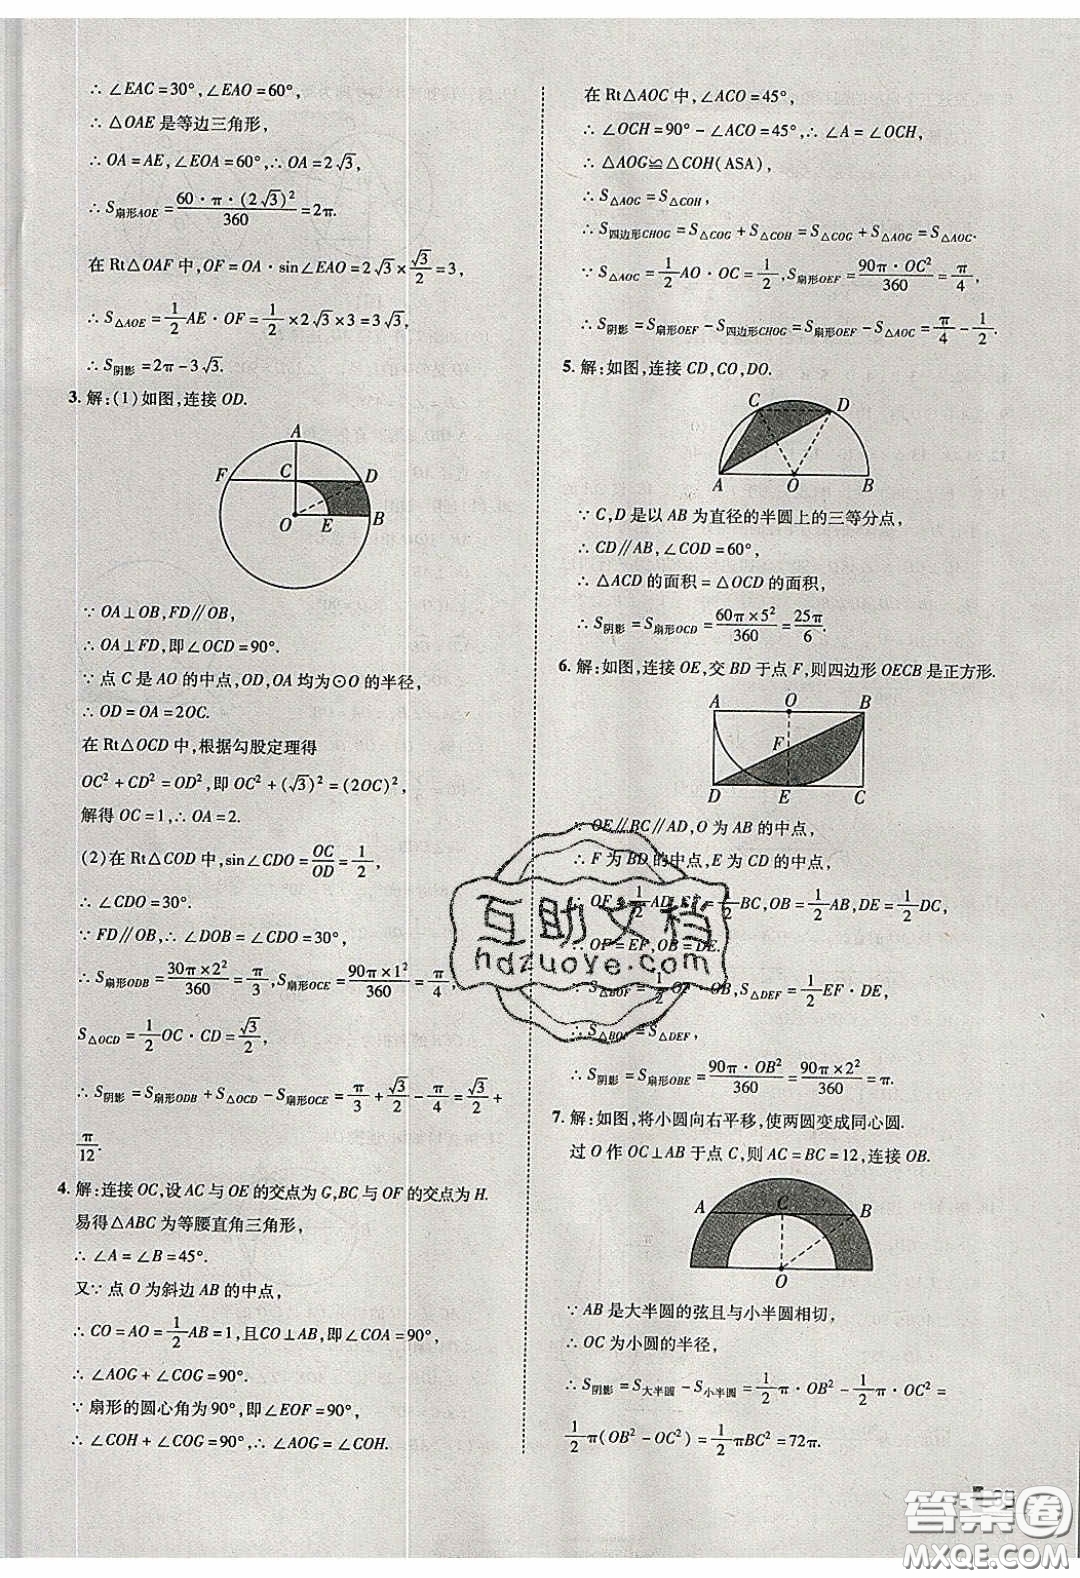 ∴ ∠EAC=30°,∠EAO=60°,
∴ △OAE 是等边三角形,
∴ OA=AE,∠EOA=60°,∴ OA=2√3,
∴ S扇形AOE=60·π·(2√3)²/360=2π.
在 Rt△OAF 中,OF=OA·sin∠EAO=2√3×√3/2=3,
∴ S△AOE=1/2 AE·OF=1/2×2√3×3=3√3.
∴ S阴影=2π-3√3.
3. 解:(1)如图,连接 OD.
A
F
C
D
O
E
B
∵ OA⊥OB,FD∥OB,
∴ OA⊥FD,即∠OCD=90°.
∵ 点 C 是 AO 的中点,OD,OA 均为⊙O 的半径,
∴ OD=OA=2OC.
在 Rt△OCD 中,根据勾股定理得
OC²+CD²=OD²,即 OC²+(√3)²=(2OC)²,
解得 OC=1,∴ OA=2.
(2)在 Rt△COD 中,sin∠CDO=OC/OD=1/2,
∴ ∠CDO=30°.
∵ FD∥OB,∴ ∠DOB=∠CDO=30°,
∴ S扇形ODB=30π×2²/360=π/3,S扇形OCE=90π×1²/360=π/4,
S△OCD=1/2 OC·CD=√3/2,
∴ S阴影=S扇形ODB+S△OCD-S扇形OCE=π/3+√3/2-π/4=√3/2+
π/12.
4. 解:连接 OC,设 AC 与 OE 的交点为 G,BC 与 OF 的交点为 H.
易得△ABC 为等腰直角三角形,
∴ ∠A=∠B=45°.
又∵ 点 O 为斜边 AB 的中点,
∴ CO=AO=1/2 AB=1,且CO⊥AB,即∠COA=90°,
∴ ∠AOG+∠COG=90°.
∵ 扇形的圆心角为 90°,即∠EOF=90°,
∴ ∠COH+∠COG=90°,∴ ∠AOG=∠COH.
在 Rt△AOC 中,∠ACO=45°,
∴ ∠OCH=90°-∠ACO=45°,∴ ∠A=∠OCH,
∴ △AOG≌△COH(ASA),
∴ S△AOG=S△COH,
∴ S四边形CHOG=S△COG+S△COH=S△COG+S△AOG=S△AOC.
∵ S△AOC=1/2 AO·OC=1/2,S扇形OEF=90π·OC²/360=π/4,
∴ S阴影=S扇形OEF-S四边形CHOG=S扇形OEF-S△AOC=π/4-1/2.
5. 解:如图,连接 CD,CO,DO.
C
D
A
O
B
∵ C,D 是以 AB 为直径的半圆上的三等分点,
∴ CD∥AB,∠COD=60°,
∴ △ACD 的面积=△OCD 的面积,
∴ S阴影=S扇形OCD=60π×5²/360=25π/6.
6. 解:如图,连接 OE,交 BD 于点 F,则四边形 OECB 是正方形.
A
O
B
F
D
E
C
∵ OE∥BC∥AD,O 为 AB 的中点,
∴ F 为 BD 的中点,E 为 CD 的中点,
∴ OF=1/2 AD,EF=1/2 BC,OB=1/2 AB,DE=1/2 DC,
∴ OF=EF,OB=DE.
∵ S△BOF=1/2 OF·OB,S△DEF=1/2 EF·DE,
∴ S△BOF=S△DEF,
∴ S阴影=S扇形OBE=90π·OB²/360=90π×2²/360=π.
7. 解:如图,将小圆向右平移,使两圆变成同心圆.
过 O 作 OC⊥AB 于点 C,则 AC=BC=12,连接 OB.
A
C
B
O
∵ AB 是大半圆的弦且与小半圆相切,
∴ OC 为小圆的半径,
∴ S阴影=S大半圆-S小半圆=1/2π·OB²-1/2π·OC²=
1/2π(OB²-OC²)=1/2πBC²=72π.
互助文档
hdzuoye.com
答案圈
MXQE.COM